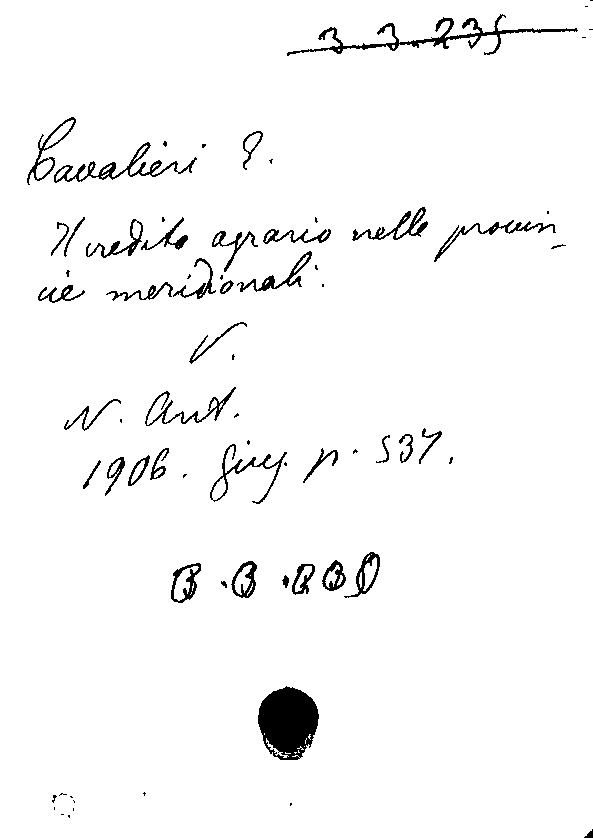 3.3.235
Cavalieri E.
Il credito agrario nelle provin-
cie meridionali.
V.
N. Ant.
1906. Giug. p. 537.